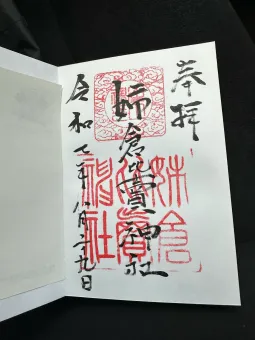 奉拝
姉倉比賣神社
令和七年八月二十九日
姉倉
比賣
神社